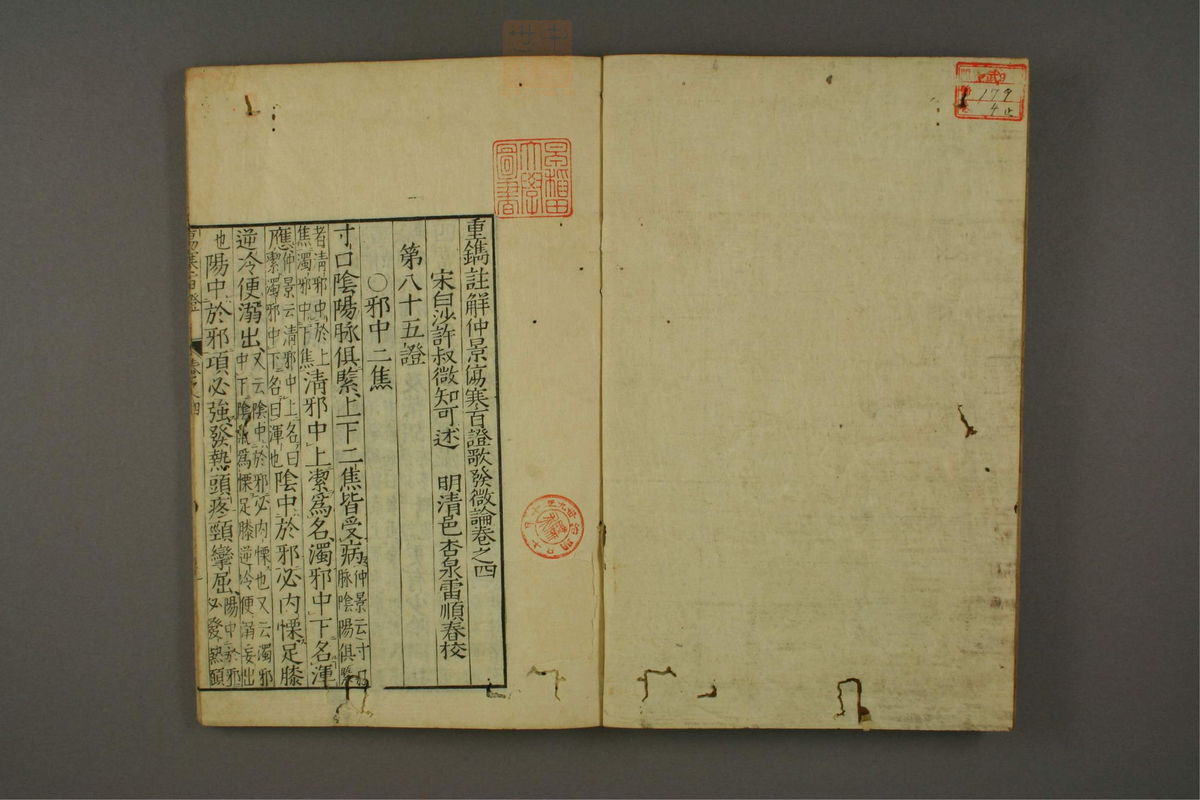 重鐫註解仲景傷寒百證歌發微論卷之四
宋白沙許叔微知可述　明清邑杏泉雷順春校
第八十五證
○邪中二焦
寸口陰陽脉俱緊上下二焦皆受病仲景云寸口脉陰陽俱緊
者清邪中於上焦濁邪中下焦清邪中上潔爲名濁邪中下名渾
應仲景云清邪中上名曰潔濁邪中下名曰渾也陰中於邪必內慄足膝
逆冷便溺出又云陰中於邪必内慄也又云濁邪中下陰氣爲慄足膝逆冷便溺妄出
也陽中於邪項必強發熱頭疼頸攣屈陽中於邪必發熱頭
傷寒百證
卷之四
早稻田大學圖書
179
4